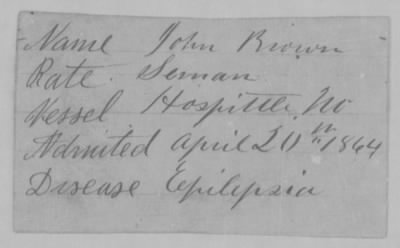 Name John Brown
Rate. Seman
Vessel. Hospittle, No
Admited April 20th 1864
Disease Epilepsia